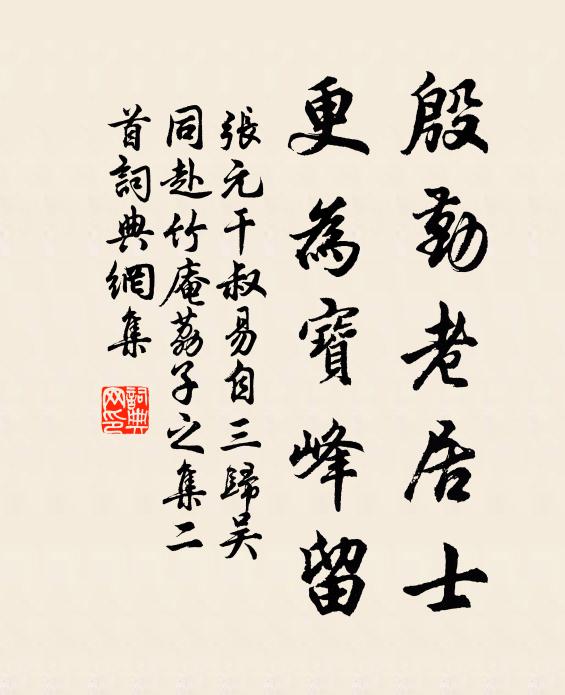 殷勤老居士
更為寶峰留
張元干叔易自三歸吴
同赴竹庵荔子之集二
首詞典網集
詞典网印